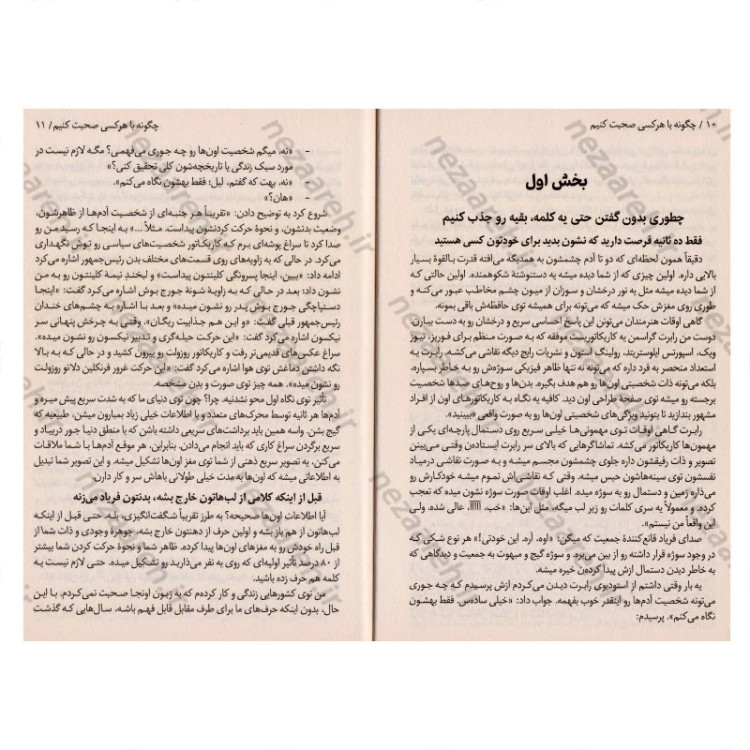 ۱۰ / چگونه با هرکسی صحبت کنیم
بخش اول
چطوری بدون گفتن حتی یه کلمه، بقیه رو جذب کنیم
فقط ده ثانیه فرصت دارید که نشون بدید برای خودتون کسی هستید
دقیقاً همون لحظه‌ای که دو تا آدم چشمشون به همدیگه می‌افته قدرت بالقوهٔ بسیار
بالایی داره. اولین چیزی که از شما دیده میشه یه دستنوشتهٔ شکوهمنده. اولین حالتی که
از شما دیده میشه مثل یه نور درخشان و سوزان از میون چشم مخاطب عبور می‌کنه و
طوری روی مغزش حک میشه که می‌تونه برای همیشه توی حافظه‌اش باقی بمونه.
گاهی اوقات هنرمندان می‌تونن این پاسخ احساسی سریع و درخشان رو به دست بیارن.
دوست من رابرت گراسمن یه کاریکاتوریست موفقه که به صورت منظم برای فوربز، نیوز
ویک، اسپورتس ایلوستریتد، رولینگ استون و نشریات رایج دیگه نقاشی می‌کشه. رابرت یه
استعداد منحصر به فرد داره که می‌تونه نه تنها ظاهر فیزیکی سوژه‌ش رو به خاطر بسپاره،
بلکه می‌تونه ذات شخصیتی اون‌ها رو هم هدف بگیره. بدن‌ها و روح‌های صدها شخصیت
برجسته رو میشه توی صفحهٔ طراحی اون دید. کافیه یه نگاه به کاریکاتورهای اون از افراد
مشهور بندازید تا بتونید ویژگی‌های شخصیتی اون‌ها رو به صورت واقعی «ببینید».
رابرت گاهی اوقات توی مهمونی‌ها خیلی سریع روی دستمال پارچه‌ای یکی از
مهمون‌ها کاریکاتور می‌کشه. تماشاگرهایی که بالای سر رابرت ایستادن وقتی می‌بینن
تصویر و ذات رفیقشون داره جلوی چشمشون مجسم میشه و به صورت نقاشی درمیاد
نفسشون توی سینه‌هاشون حبس میشه. وقتی که نقاشی‌اش تموم میشه خودکارش رو
می‌ذاره زمین و دستمال رو به سوژه میده. اغلب اوقات صورت سوژه نشون میده که تعجب
کرده، و معمولاً یه سری کلمات رو زیر لب میگه، مثل این‌ها: «خب، آآآآآ، عالی شده، ولی
این واقعاً من نیستم».
صدای فریاد قانع‌کنندهٔ جمعیت که میگن: «اوه، آره، این خودتی!» هر نوع شکی که
در وجود سوژه قرار داشته رو از بین می‌برد. و سوژه گیج و مبهوت به جمعیت و دیدگاهی که
به خاطر دیدن دستمال ازش پیدا کردن خیره میشه.
یه بار وقتی داشتم از استودیوی رابرت دیدن می‌کردم ازش پرسیدم که چه جوری
می‌تونه شخصیت آدم‌ها رو اینقدر خوب بفهمه. جواب داد: «خیلی ساده‌س. فقط بهشون
نگاه می‌کنم». پرسیدم:
چگونه با هرکسی صحبت کنیم / ۱۱
- «نه، میگم شخصیت اون‌ها رو چه جوری می‌فهمی؟ مگه لازم نیست در
مورد سبک زندگی یا تاریخچه‌شون کلی تحقیق کنی؟»
- «نه، بهت که گفتم، لیل؛ فقط بهشون نگاه می‌کنم».
- «هان؟»
شروع کرد به توضیح دادن: «تقریباً هر جنبه‌ای از شخصیت آدم‌ها از ظاهرشون،
وضعیت بدنشون، و نحوهٔ حرکت کردنشون پیداست. مثلاً ...» به اینجا که رسید من رو
صدا کرد تا سراغ پوشه‌ای برم که کاریکاتور شخصیت‌های سیاسی رو توش نگهداری
می‌کرد. در حالی که به زاویه‌های روی قسمت‌های مختلف بدن رئیس‌جمهور اشاره می‌کرد
ادامه داد: «ببین، اینجا پسرونگی کلینتون پیداست» و لبخند نیمهٔ کلینتون رو به من
نشون داد؛ بعد در حالی که به زاویهٔ شونهٔ جورج بوش اشاره می‌کرد گفت: «اینجا
دستپاچگی جورج بوش پدر رو نشون میده» و بعد با اشاره به چشم‌های خندان
رئیس‌جمهور قبلی گفت: «و این هم جذابیت ریگان». وقتی به چرخش پنهانی سر
نیکسون اشاره می‌کرد گفت: «این حرکت حیله‌گری و تدبیر نیکسون رو نشون میده».
سراغ عکس‌های قدیمی‌تر رفت و کاریکاتور روزولت رو بیرون کشید و در حالی که به بالا
نگه داشتن دماغش توی هوا اشاره می‌کرد گفت: «این حرکت غرور فرنکلین دلانو روزولت
رو نشون میده». همه چیز توی صورت و بدن مشخصه.
تأثیر توی نگاه اول محو نشدنیه. چرا؟ چون توی دنیای ما که به شدت سریع پیش میره و
آدم‌ها هر ثانیه توسط محرک‌های متعدد و یا اطلاعات خیلی زیاد بمبارون میشن، طبیعیه که
گیج بشن. واسه همین باید برداشت‌های سریعی داشته باشن که با منطق دنیا جور دربیاد و
سریع برگردن سراغ کاری که باید انجام می‌دادن. بنابراین، هر موقع آدم‌ها با شما ملاقات
می‌کنن، یه تصویر سریع ذهنی از شما توی مغز اون‌ها تشکیل میشه. و این تصویر شما تبدیل
به اطلاعاتی میشه که اون‌ها به مدت خیلی طولانی باهاش سر و کار دارن.
قبل از اینکه کلامی از لب‌هاتون خارج بشه، بدنتون فریاد می‌زنه
آیا اطلاعات اون‌ها صحیحه؟ به طرز تقریباً شگفت‌انگیزی، بله. حتی قبل از اینکه
لب‌هاتون از هم باز بشه و اولین حرف از دهنتون خارج بشه، جوهرهٔ وجودی و ذات شما از
قبل راه خودش رو به مغزهای اون‌ها پیدا کرده. ظاهر شما و نحوهٔ حرکت کردن شما بیشتر
از ۸۰ درصد تأثیر اولیه‌ای که روی یه نفر می‌ذارید رو تشکیل میده. حتی لازم نیست یه
کلمه هم حرف زده باشید.
من توی کشورهایی زندگی و کار کرده‌م که یه زبون اونجا صحبت نمی‌کردم. با این
حال، بدون اینکه حرف‌های ما برای طرف مقابل قابل فهم باشه، سال‌هایی که گذشت
nezaareh.ir